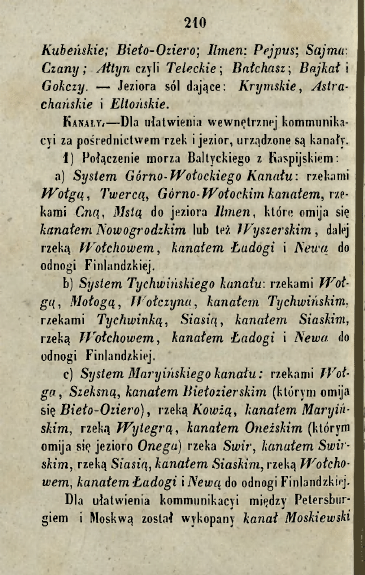 210
Kubeńskie; Bieto-Oziero; Ilmen: Pejpus; Sajma:
Czany; Attyn czyli Teleckie; Batchasz; Bajkat i
Gokczy. — Jeziora sól dające: Krymskie, Astra-
chańskie i Eltońskie.
KANAŁY.—Dla ułatwienia wewnętrznej kommunika-
cyi za pośrednictwem rzek i jezior, urządzone są kanały.
1) Połączenie morza Baltyckiego z Kaspijskiem:
a) System Górno-Wotockiego Kanatu: rzekami
Wotgą, Twercą, Górno-Wotockim kanatem, rze-
kami Cną, Mstą do jeziora Ilmen, które omija się
kanatem Nowogrodzkim lub też Wyszerskim, dalej
rzeką Wotchowem, kanatem Ładogi i Newą do
odnogi Finlandzkiej.
b) System Tychwińskiego kanatu: rzekami Wot-
gą, Motogą, Wotczyną, kanatem Tychwińskim,
rzekami Tychwinką, Siasią, kanatem Siaskim,
rzeką Wotchowem, kanatem Ładogi i Newą do
odnogi Finlandzkiej.
c) System Maryińskiego kanatu: rzekami Wot-
gą, Szeksną, kanatem Bietozierskim (którym omija
się Bieto-Oziero), rzeką Kowżą, kanatem Maryiń-
skim, rzeką Wytegrą, kanatem Oneżskim (którym
omija się jezioro Onega) rzeka Swir, kanatem Swir-
skim, rzeką Siasią, kanatem Siaskim, rzeką Wotcho-
wem, kanatem Ładogi i Newą do odnogi Finlandzkiej.
Dla ułatwienia kommunikacyi między Petersbur-
giem i Moskwą został wykopany kanał Moskiewski